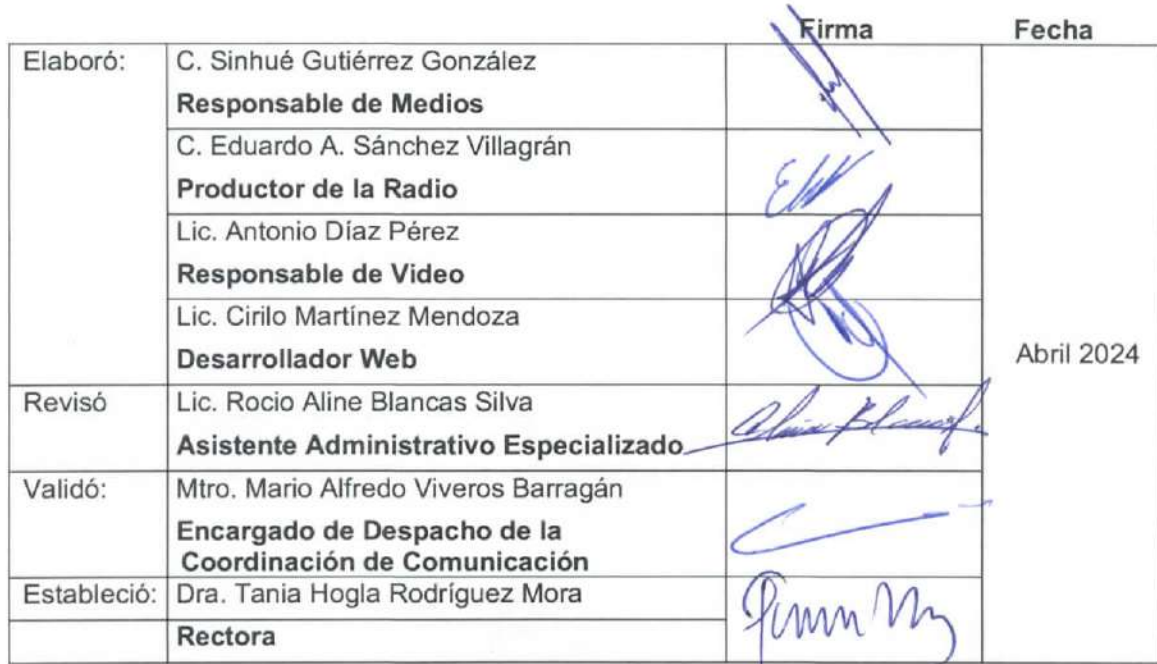 Firma Fecha
Elaboró: C. Sinhué Gutiérrez González
Responsable de Medios
C. Eduardo A. Sánchez Villagrán
Productor de la Radio
Lic. Antonio Díaz Pérez
Responsable de Video
Lic. Cirilo Martínez Mendoza
Desarrollador Web
Abril 2024
Revisó Lic. Rocio Aline Blancas Silva
Asistente Administrativo Especializado
Validó: Mtro. Mario Alfredo Viveros Barragán
Encargado de Despacho de la
Coordinación de Comunicación
Estableció: Dra. Tania Hogla Rodríguez Mora
Rectora